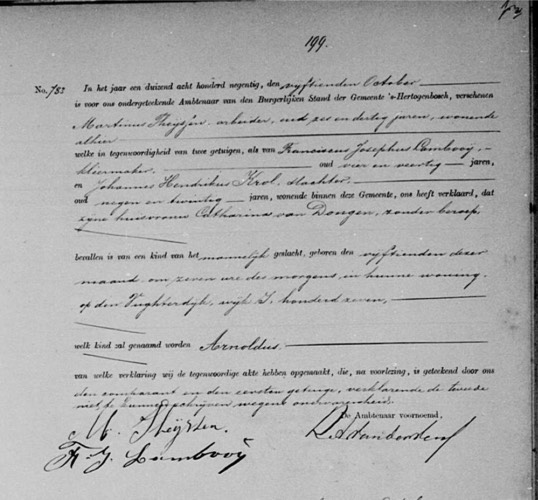 199.
No. 782
In het jaar een duizend acht honderd negentig, den vyftienden October
is voor ons ondergeteekende Ambtenaar van den Burgerlijken Stand der Gemeente 's-Hertogenbosch, verschenen
Martinus Theyssen, arbeider, oud zes en dertig jaren, wonende
alhier
welke in tegenwoordigheid van twee getuigen, als van Franciscus Josephus Lambooy,
oud vier en veertig jaren,
en Johannes Hendrikus Krol, slachter
oud negen en twintig jaren, wonende binnen deze Gemeente, ons heeft verklaard, dat
zyne huisvrouw Catharina van Dongen, zonder beroep,
bevallen is van een kind van het mannelyk geslacht, geboren den vyftienden dezer
maand om zeven ure des morgens, in hunne woning
op den Vughterdyk, wyk I, honderd zeven,
welk kind zal genaamd worden Arnoldus.
van welke verklaring wij de tegenwoordige akte hebben opgemaakt, die, na voorlezing, is geteekend door ons
den comparant en den eersten getuige, verklarende de tweede
niet te kunnen schrijven wegens onervarenheid.
De Ambtenaar voornoemd,
M. Theyssen.
F. J. Lambooÿ